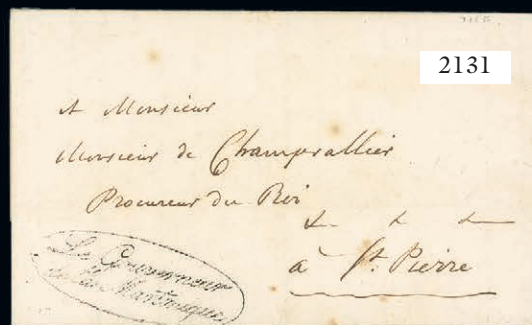 2131
A Monsieur
Monsieur de Champvallier
Procureur du Roi
à St. Pierre
Le Gouverneur
de la Martinique